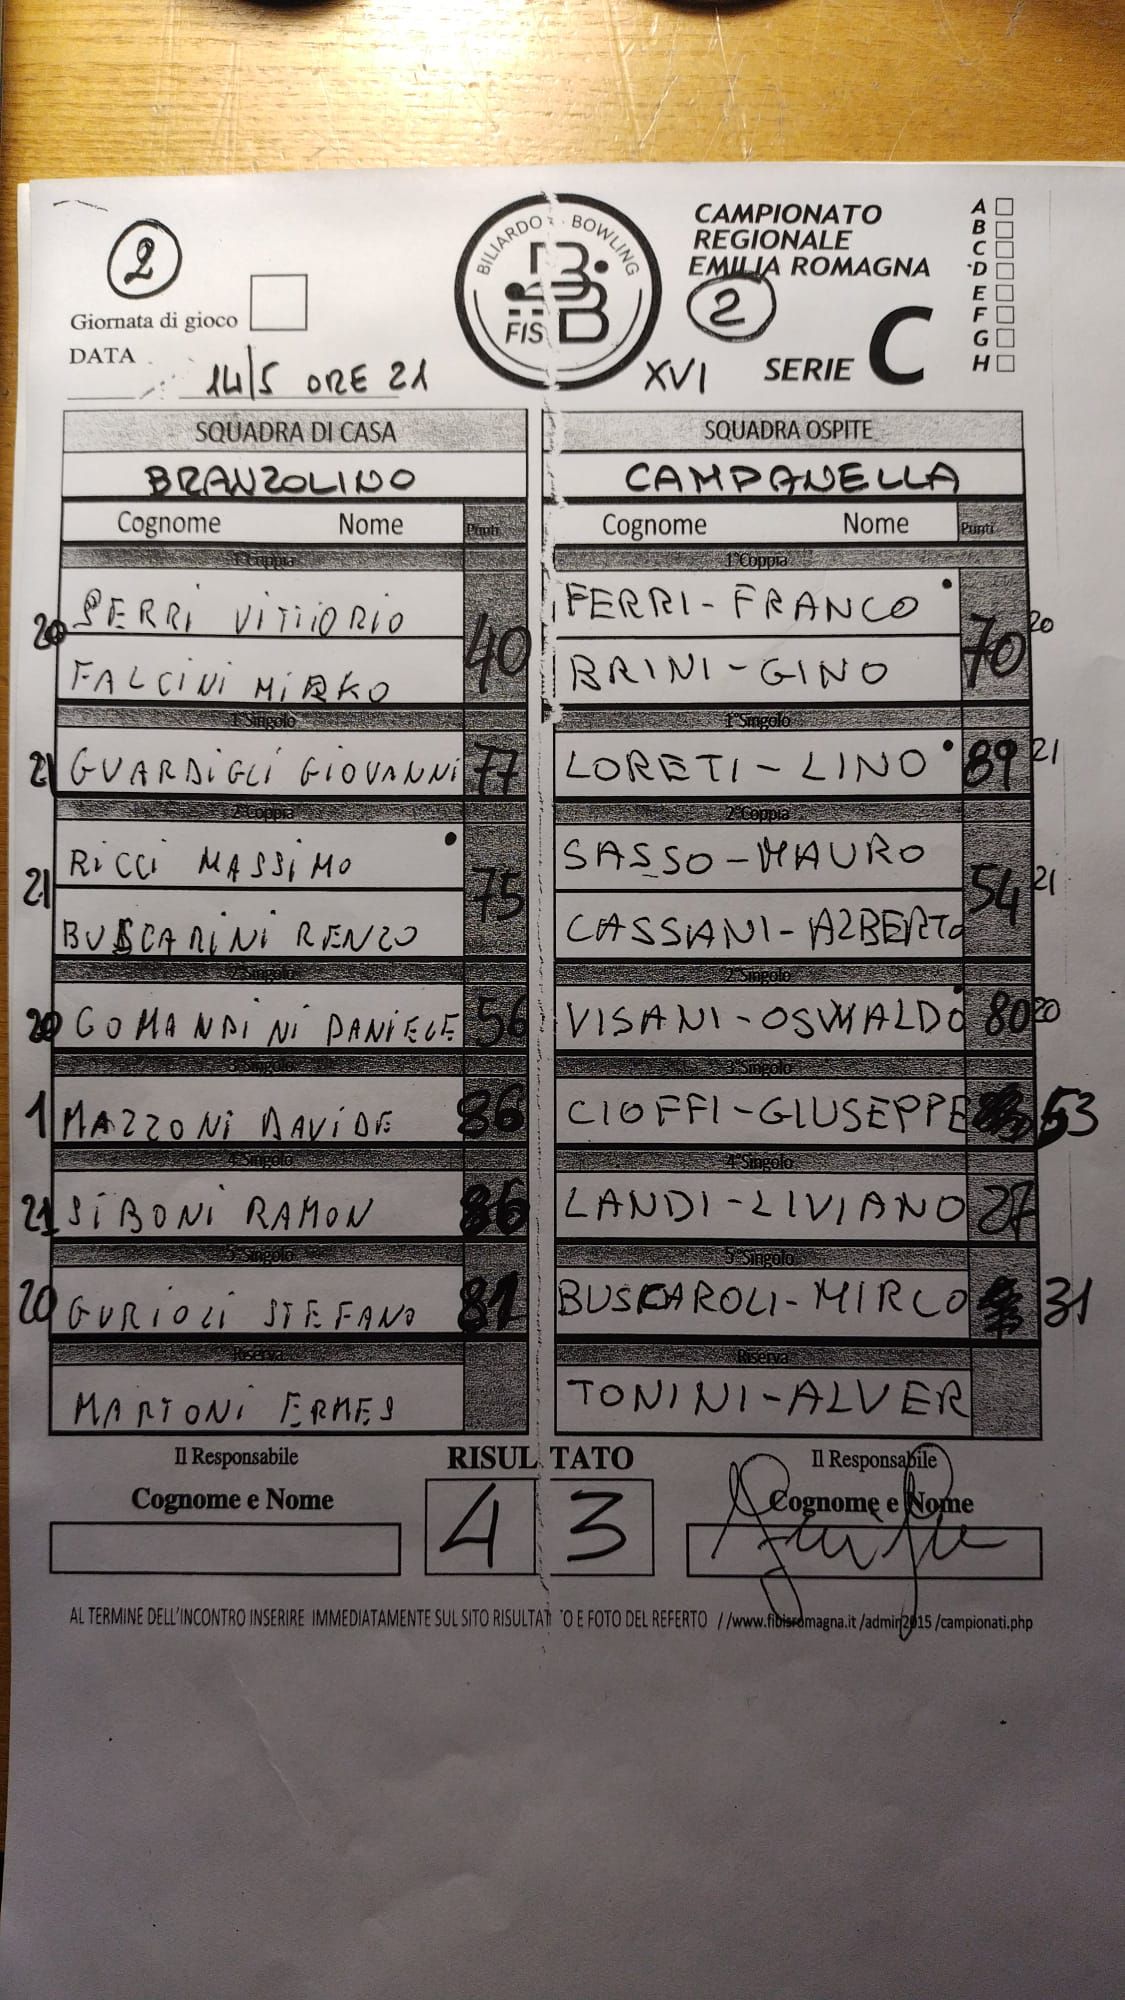 2
Giornata di gioco
DATA
14/5 ORE 21
BILIARDO · BOWLING
FIS
CAMPIONATO
REGIONALE
EMILIA ROMAGNA
2
XVI
SERIE C
A
B
C
D
E
F
G
H
SQUADRA DI CASA SQUADRA OSPITE
BRANZOLINO CAMPANELLA
Cognome Nome Punti Cognome Nome Punti
1°Coppia 1°Coppia
VITTORIO FERRI-FRANCO
20 40 70 20
FALCINI MIRKO BRINI-GINO
1°Singolo 1°Singolo
21 GUARDIGLI GIOVANNI 77 LORETI-LINO 89 21
2°Coppia 2°Coppia
RICCI MASSIMO SASSO-MAURO
21 75 54 21
BUSCARINI RENZO CASSIANI-ALBERTO
2°Singolo 2°Singolo
20 GOMANDINI DANIELE 56 VISANI-OSWALDO 80 20
3°Singolo 3°Singolo
1 MAZZONI DAVIDE 86 CIOFFI-GIUSEPPE 53
4°Singolo 4°Singolo
21 SIBONI RAMON 86 LANDI-LIVIANO 27
5°Singolo 5°Singolo
20 GURIOLI STEFANO 81 BUSCAROLI-MIRCO 31
Riserva Riserva
MARTONI ERMES TONINI-ALVER
Il Responsabile RISULTATO Il Responsabile
Cognome e Nome 4 3 Cognome e Nome
AL TERMINE DELL'INCONTRO INSERIRE IMMEDIATAMENTE SUL SITO RISULTATO E FOTO DEL REFERTO //www.fibisromagna.it/admin2015/campionati.php